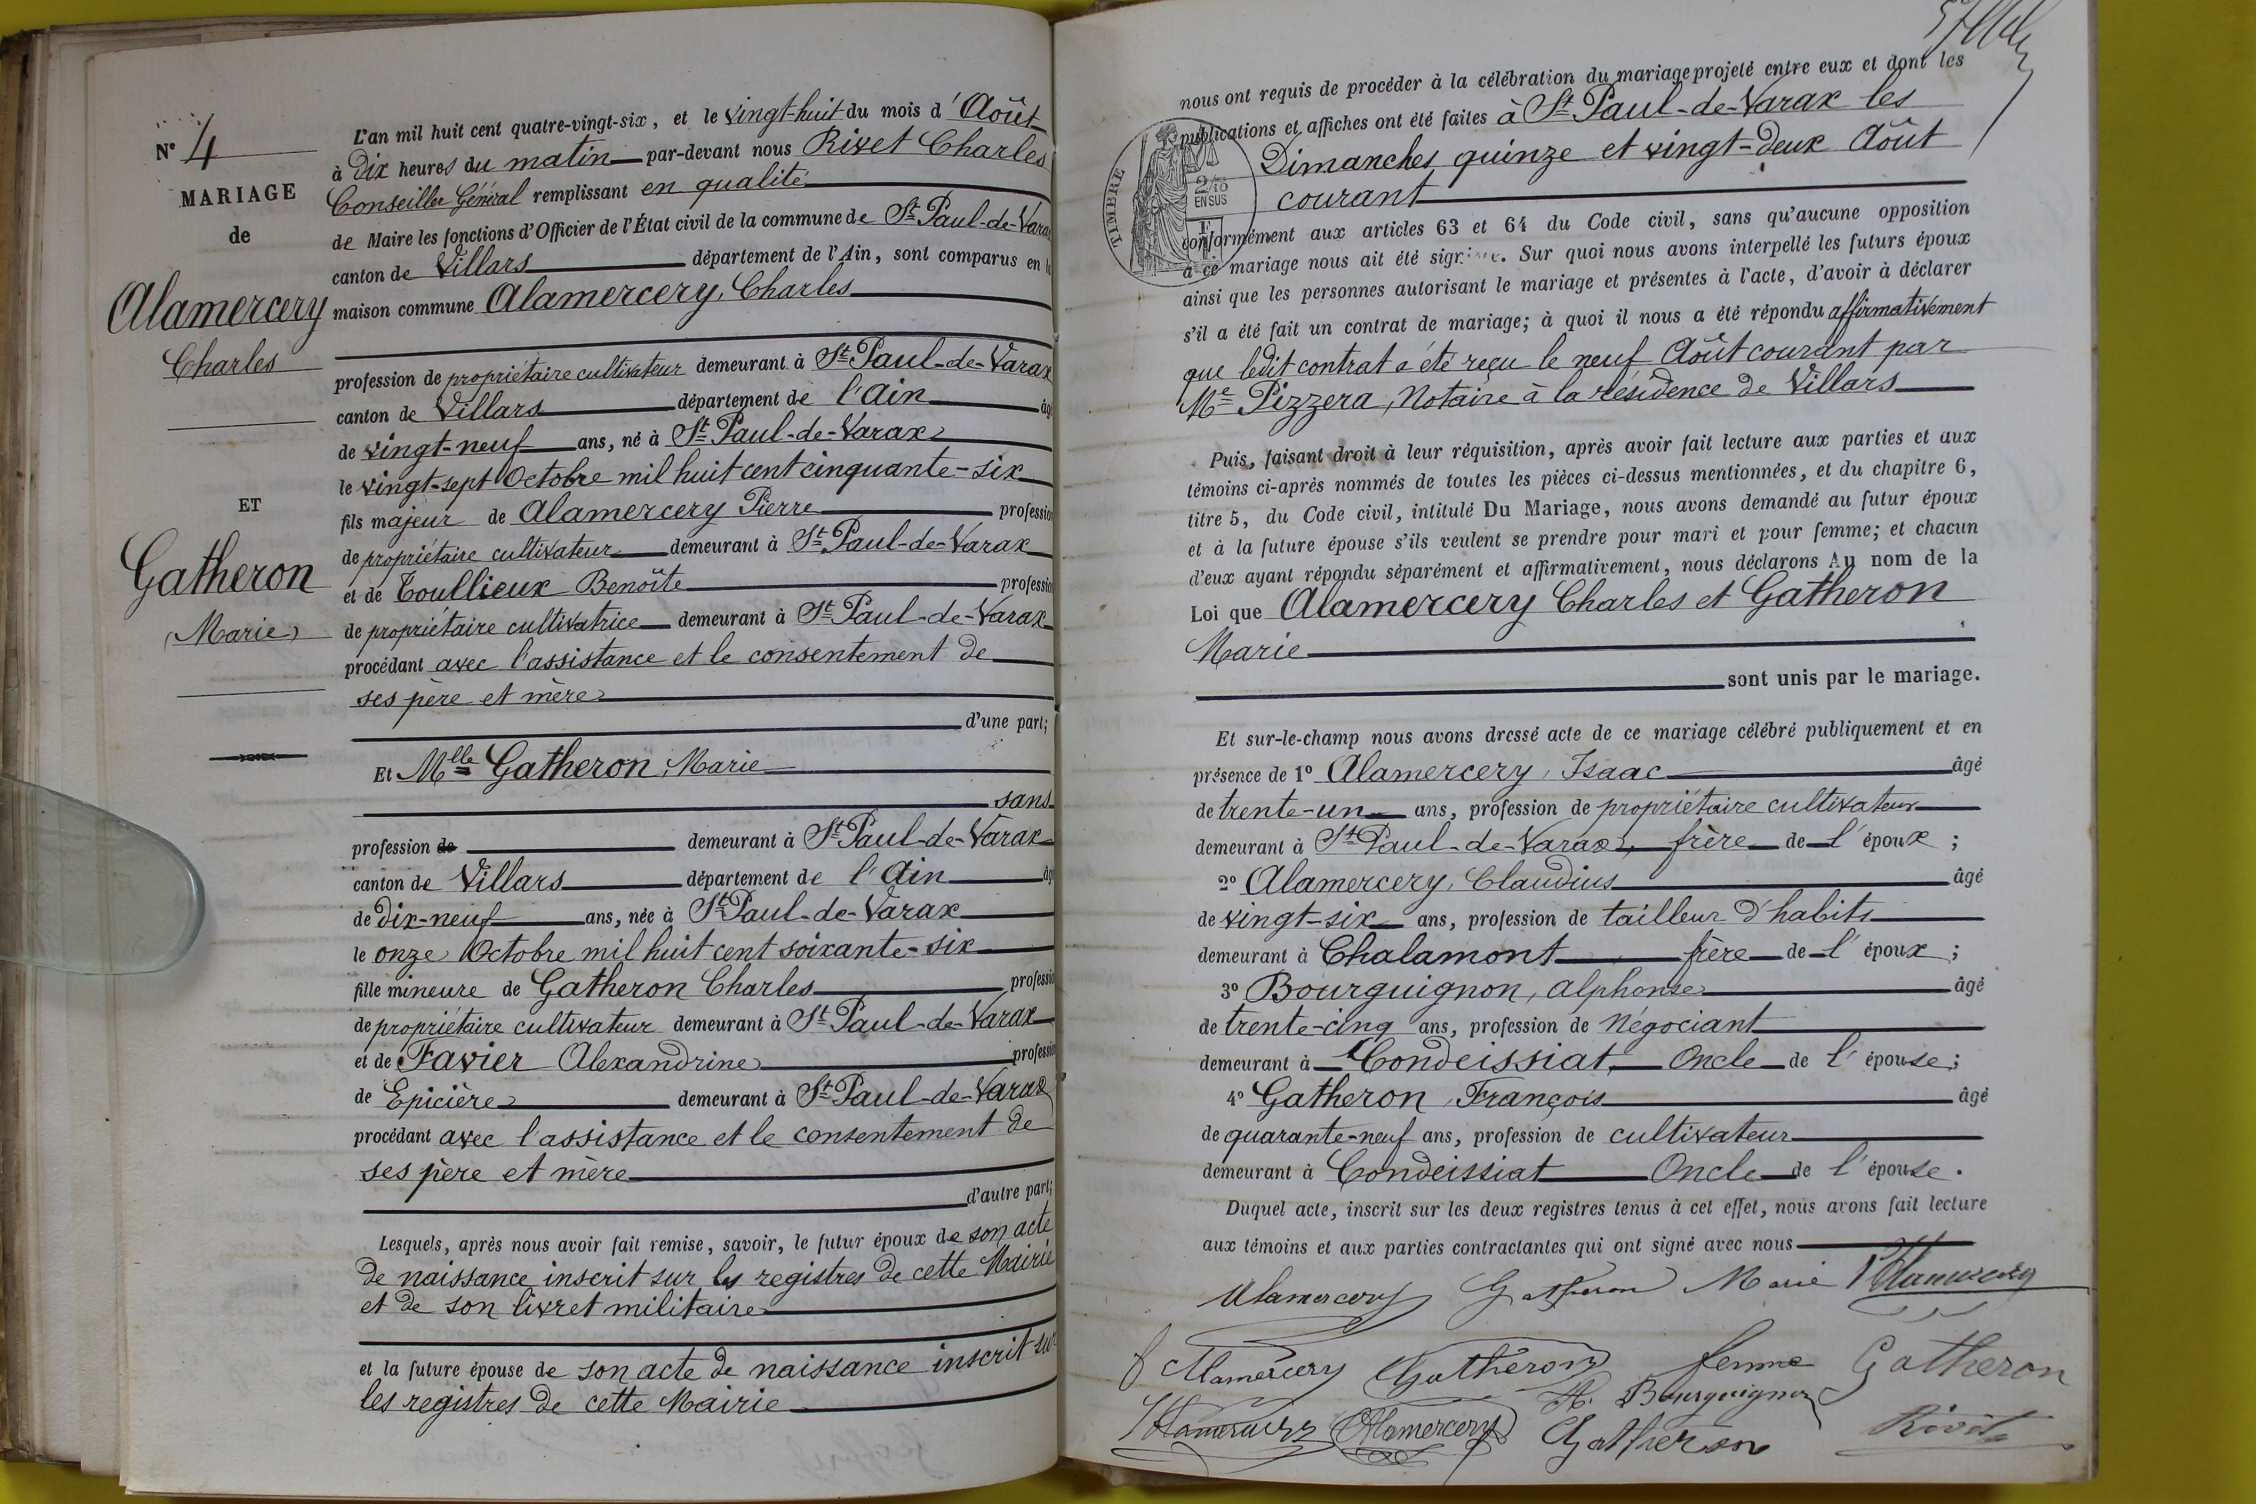 N° 4
MARIAGE
de
Alamercery
Charles
ET
Gatheron
(Marie)
L'an mil huit cent quatre-vingt-six, et le vingt-huit du mois d'Août
à dix heures du matin par-devant nous Rivet Charles
Conseiller Général remplissant en qualité
de Maire les fonctions d'Officier de l'État civil de la commune de St Paul-de-Varax
canton de Villars département de l'Ain, sont comparus en la
maison commune Alamercery, Charles
profession de propriétaire cultivateur demeurant à St Paul-de-Varax
canton de Villars département de l'Ain âgé
de vingt-neuf ans, né à St Paul-de-Varax
le vingt-sept Octobre mil huit cent cinquante-six
fils majeur de Alamercery Pierre profession
de propriétaire cultivateur demeurant à St Paul-de-Varax
et de Toullieux Benoîte profession
de propriétaire cultivatrice demeurant à St Paul-de-Varax
procédant avec l'assistance et le consentement de
ses père et mère
d'une part;
Et Mlle Gatheron, Marie
sans
profession de demeurant à St Paul-de-Varax
canton de Villars département de l'Ain âgé
de dix-neuf ans, née à St Paul-de-Varax
le onze Octobre mil huit cent soixante-six
fille mineure de Gatheron Charles profession
de propriétaire cultivateur demeurant à St Paul-de-Varax
et de Favier Alexandrine profession
de Epicière demeurant à St Paul-de-Varax
procédant avec l'assistance et le consentement de
ses père et mère
d'autre part;
Lesquels, après nous avoir fait remise, savoir, le futur époux de son acte
de naissance inscrit sur les registres de cette Mairie
et de son livret militaire
et la future épouse de son acte de naissance inscrit sur
les registres de cette Mairie
nous ont requis de procéder à la célébration du mariage projeté entre eux et dont les
publications et affiches ont été faites à St Paul-de-Varax les
Dimanches quinze et vingt-deux Août
courant
TIMBRE
2/10
EN SUS
conformément aux articles 63 et 64 du Code civil, sans qu'aucune opposition
à ce mariage nous ait été signifiée. Sur quoi nous avons interpellé les futurs époux
ainsi que les personnes autorisant le mariage et présentes à l'acte, d'avoir à déclarer
s'il a été fait un contrat de mariage; à quoi il nous a été répondu affirmativement
que ledit contrat a été reçu le neuf Août courant par
Me Pizzera, Notaire à la résidence de Villars
Puis, faisant droit à leur réquisition, après avoir fait lecture aux parties et aux
témoins ci-après nommés de toutes les pièces ci-dessus mentionnées, et du chapitre 6,
titre 5, du Code civil, intitulé Du Mariage, nous avons demandé au futur époux
et à la future épouse s'ils veulent se prendre pour mari et pour femme; et chacun
d'eux ayant répondu séparément et affirmativement, nous déclarons Au nom de la
Loi que Alamercery Charles et Gatheron
Marie
sont unis par le mariage.
Et sur-le-champ nous avons dressé acte de ce mariage célébré publiquement et en
présence de 1° Alamercery, Isaac âgé
de trente-un ans, profession de propriétaire cultivateur
demeurant à St Paul-de-Varax, frère de l'époux;
2° Alamercery, Claudius âgé
de vingt-six ans, profession de tailleur d'habits
demeurant à Chalamont frère de l'époux;
3° Bourguignon, Alphonse âgé
de trente-cinq ans, profession de Négociant
demeurant à Condeissiat, Oncle de l'épouse;
4° Gatheron, François âgé
de quarante-neuf ans, profession de cultivateur
demeurant à Condeissiat Oncle de l'épouse.
Duquel acte, inscrit sur les deux registres tenus à cet effet, nous avons fait lecture
aux témoins et aux parties contractantes qui ont signé avec nous
Alamercery Gatheron Marie Alamercery
Alamercery Gatheron femme Gatheron
A. Bourguignon
Alamercery Alamercery Gatheron Rivet